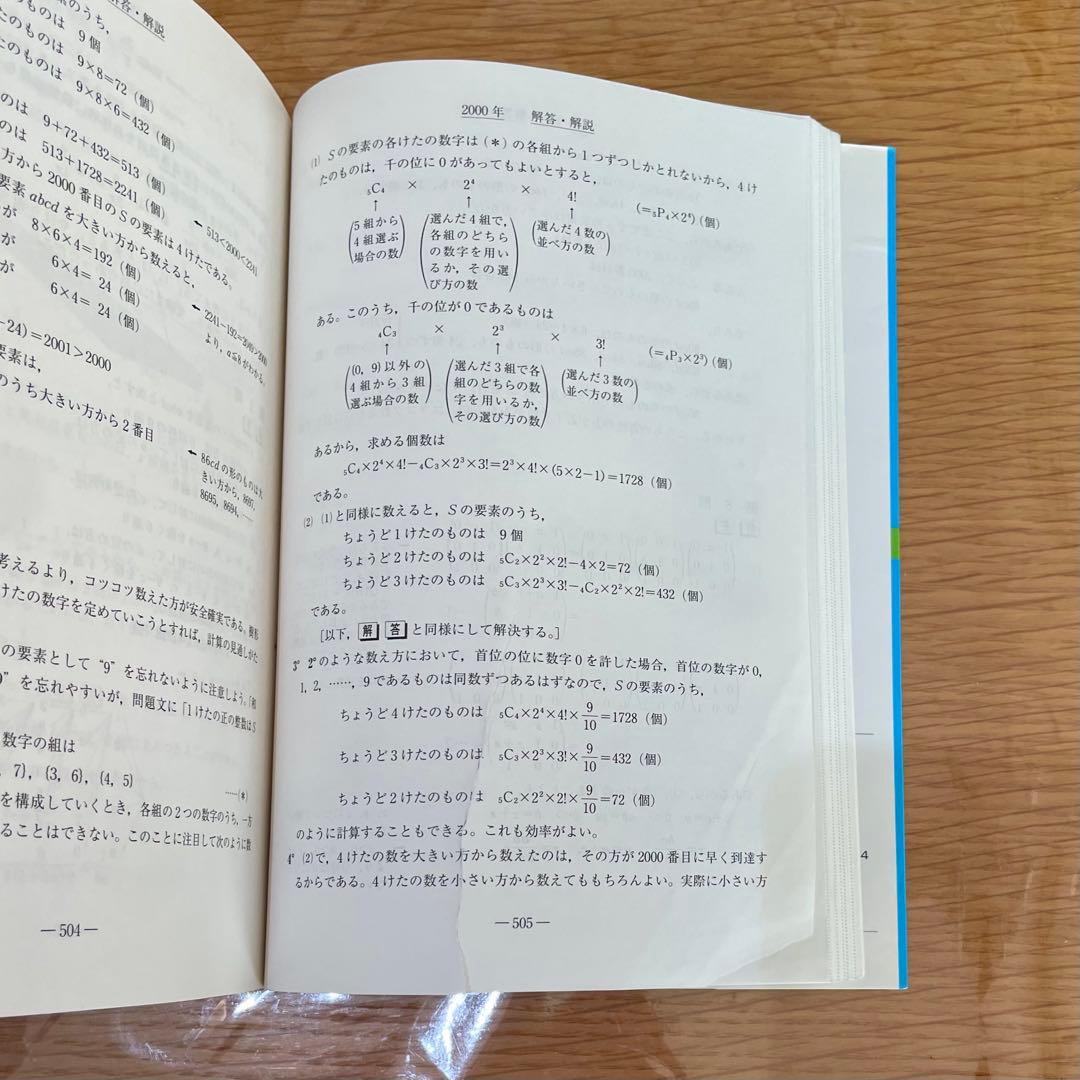 解答・解説
のうち,
のものは 9個
たのものは 9×8=72（個）
たのものは 9×8×6=432（個）
のは 9+72+432=513（個）
のは 513+1728=2241（個）
方から 2000 番目の S の要素は4けたである。
←513<2000<2241
要素 abcd を大きい方から数えると,
が 8×6×4=192（個）
が 6×4= 24（個）
6×4= 24（個）
←2241-192=2049>2000
より, a≦8 がわかる。
-24)=2001>2000
要素は,
のうち大きい方から2番目
← 86cd の形のものは大
きい方から, 8697,
8695, 8694, ……
考えるより, コツコツ数えた方が安全確実である。樹形
けたの数字を定めていこうとすれば, 計算の見通しがた
の要素として “9” を忘れないように注意しよう。
9” を忘れやすいが, 問題文に「1けたの正の整数はS
数字の組は
, 7}, {3, 6}, {4, 5} ……(＊)
を構成していくとき, 各組の2つの数字のうち, 一方
ることはできない。このことに注目して次のように数
—504—
2000 年 解答・解説
(1) S の要素の各けたの数字は (＊) の各組から1つずつしかとれないから, 4け
たのものは, 千の位に0があってもよいとすると,
₅C₄ × 2⁴ × 4! (=₅P₄×2⁴)（個）
↑ ↑ ↑
(5組から 4組選ぶ 場合の数)
(選んだ4組で, 各組のどちら の数字を用い るか, その選 び方の数)
(選んだ4数の 並べ方の数)
ある。このうち, 千の位が0であるものは
₄C₃ × 2³ × 3! (=₄P₃×2³)（個）
↑ ↑ ↑
({0, 9}以外の 4組から3組 選ぶ場合の数)
(選んだ3組で各 組のどちらの数 字を用いるか, その選び方の数)
(選んだ3数の 並べ方の数)
あるから, 求める個数は
₅C₄×2⁴×4!-₄C₃×2³×3!=2³×4!×(5×2-1)=1728（個）
である。
(2) (1)と同様に数えると, S の要素のうち,
ちょうど1けたのものは 9個
ちょうど2けたのものは ₅C₂×2²×2!-4×2=72（個）
ちょうど3けたのものは ₅C₃×2³×3!-₄C₂×2²×2!=432（個）
である。
[以下, 解 答 と同様にして解決する。]
3° 2°のような数え方において, 首位の位に数字0を許した場合, 首位の数字が0,
1, 2, ……, 9であるものは同数ずつあるはずなので, S の要素のうち,
ちょうど4けたのものは ₅C₄×2⁴×4!×9/10=1728（個）
ちょうど3けたのものは ₅C₃×2³×3!×9/10=432（個）
ちょうど2けたのものは ₅C₂×2²×2!×9/10=72（個）
のように計算することもできる。これも効率がよい。
4° (2)で, 4けたの数を大きい方から数えたのは, その方が2000番目に早く到達す
るからである。4けたの数を小さい方から数えてももちろんよい。実際に小さい方
—505—
4